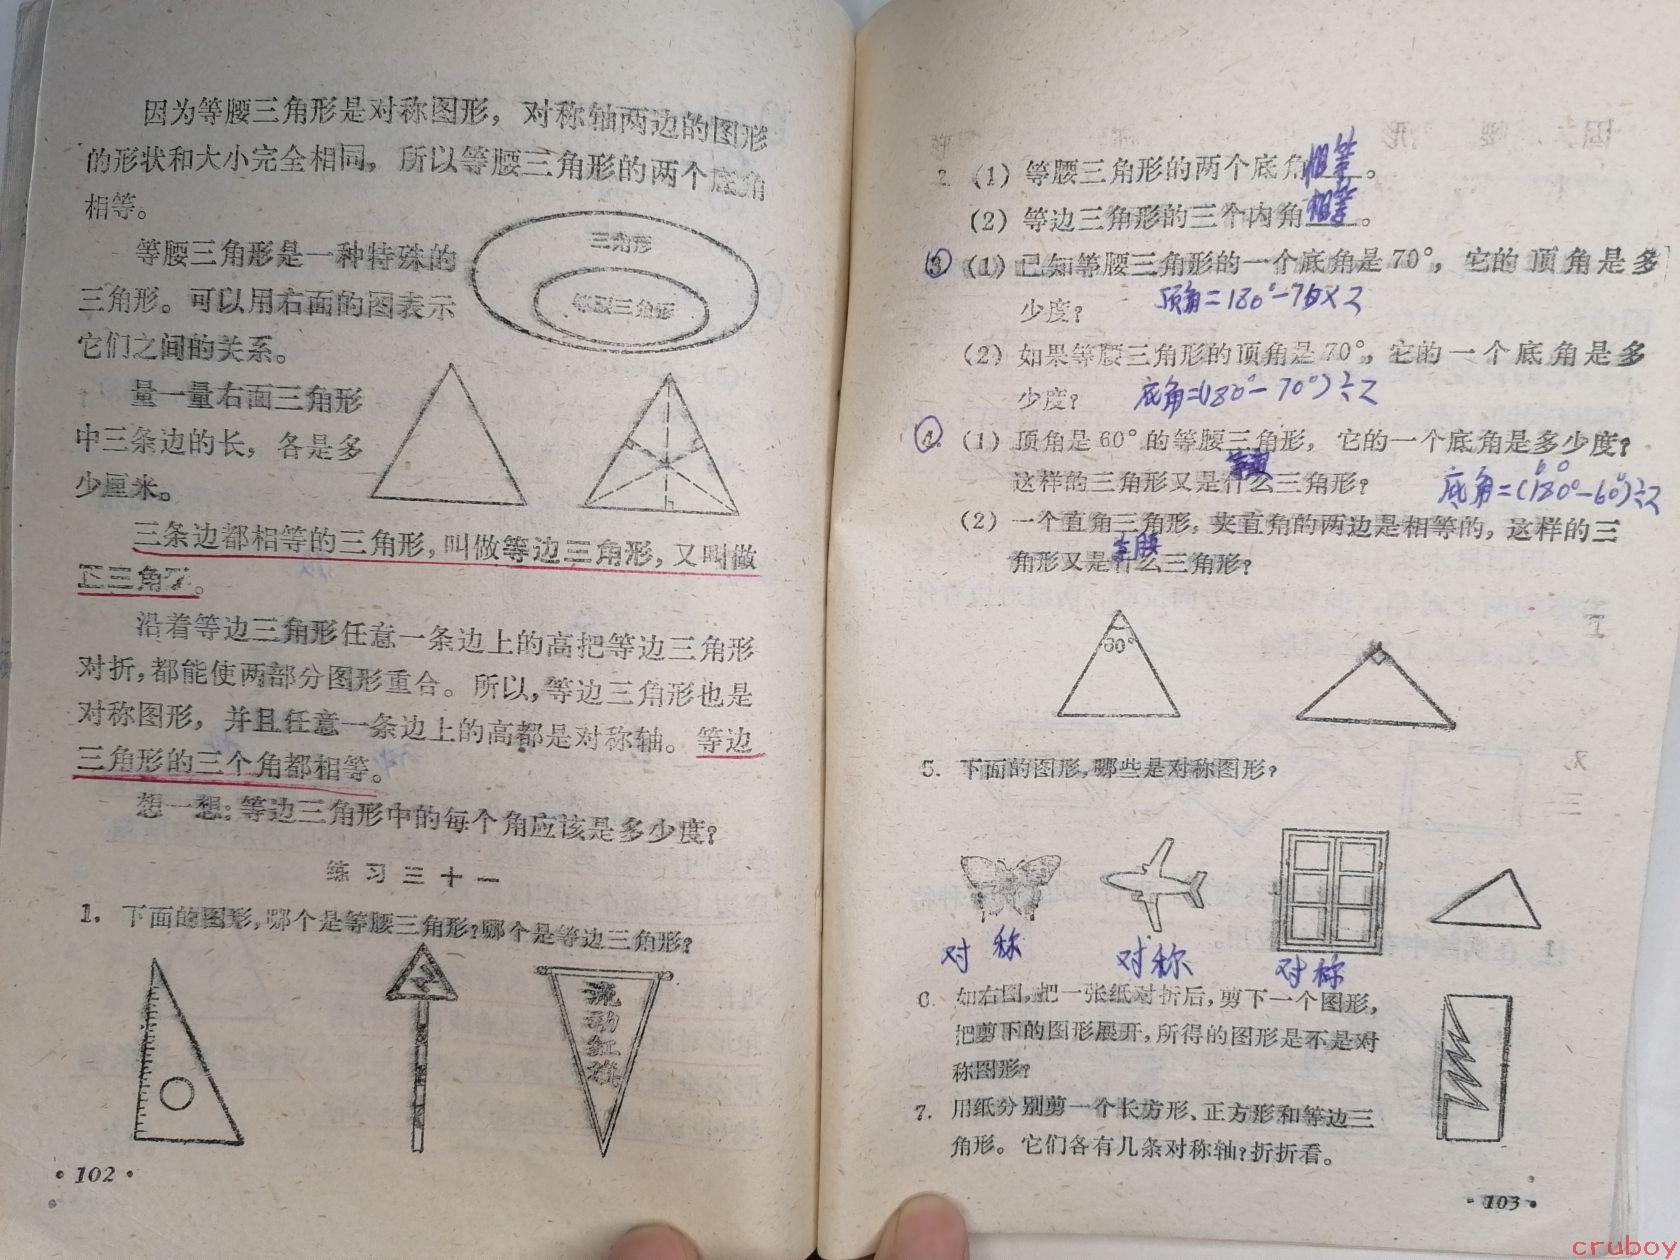 因为等腰三角形是对称图形，对称轴两边的图形
的形状和大小完全相同，所以等腰三角形的两个底角
相等。
等腰三角形是一种特殊的
三角形。可以用右面的图表示
它们之间的关系。
三角形
等腰三角形
量一量右面三角形
中三条边的长，各是多
少厘米。
三条边都相等的三角形，叫做等边三角形，又叫做
正三角形。
沿着等边三角形任意一条边上的高把等边三角形
对折，都能使两部分图形重合。所以，等边三角形也是
对称图形，并且任意一条边上的高都是对称轴。等边
三角形的三个角都相等。
想一想：等边三角形中的每个角应该是多少度？
练习三十一
1. 下面的图形，哪个是等腰三角形？哪个是等边三角形？
流动红旗
·102·
2. (1) 等腰三角形的两个底角相等。
(2) 等边三角形的三个内角相等。
3. (1) 已知等腰三角形的一个底角是70°，它的顶角是多
少度？ 顶角=180°-70×2
(2) 如果等腰三角形的顶角是70°，它的一个底角是多
少度？ 底角=(180°-70°)÷2
4. (1) 顶角是60°的等腰三角形，它的一个底角是多少度？
等边
这样的三角形又是什么三角形？ 底角=(180°-60°)÷2
(2) 一个直角三角形，夹直角的两边是相等的，这样的三
等腰
角形又是什么三角形？
60°
5. 下面的图形，哪些是对称图形？
对称 对称 对称
6. 如右图，把一张纸对折后，剪下一个图形，
把剪下的图形展开，所得的图形是不是对
称图形？
7. 用纸分别剪一个长方形、正方形和等边三
角形。它们各有几条对称轴？折折看。
·103·
cruboy